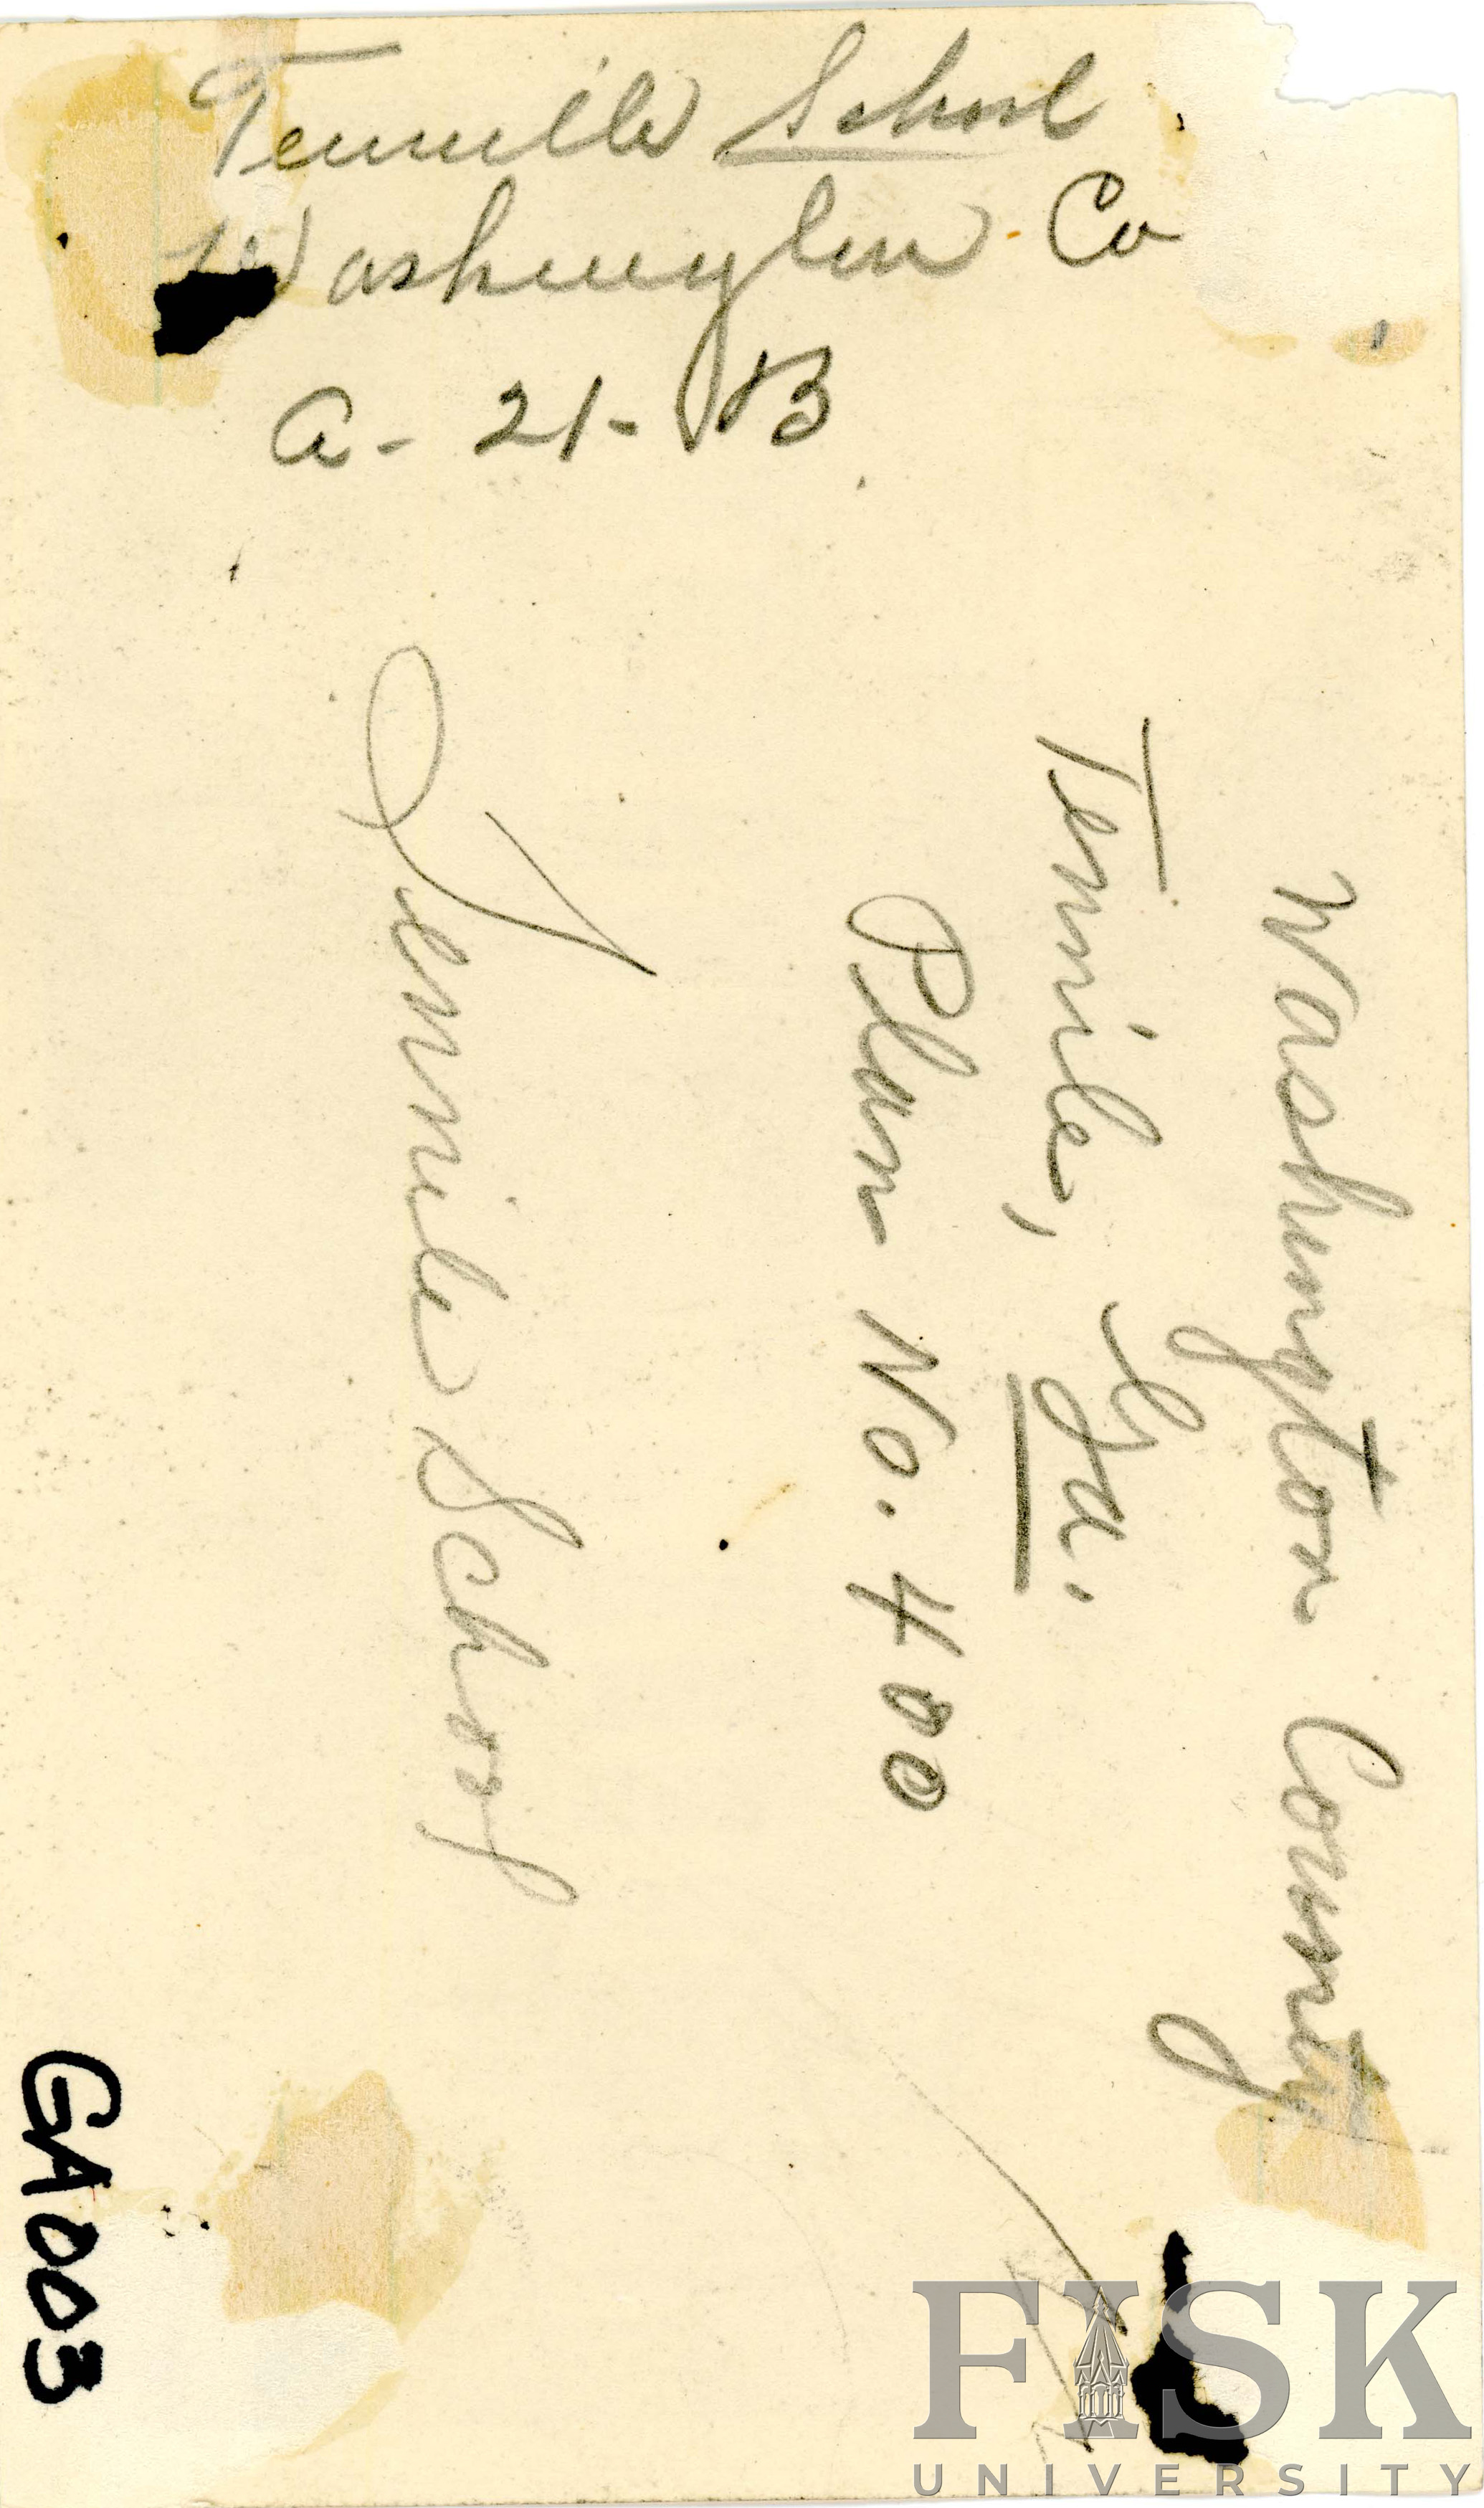 Tennille School
Washington Co
A - 21 - B
Washington County
Tennile, Ga.
Plan No. 400
Tennile School
GA003
FISK
UNIVERSITY